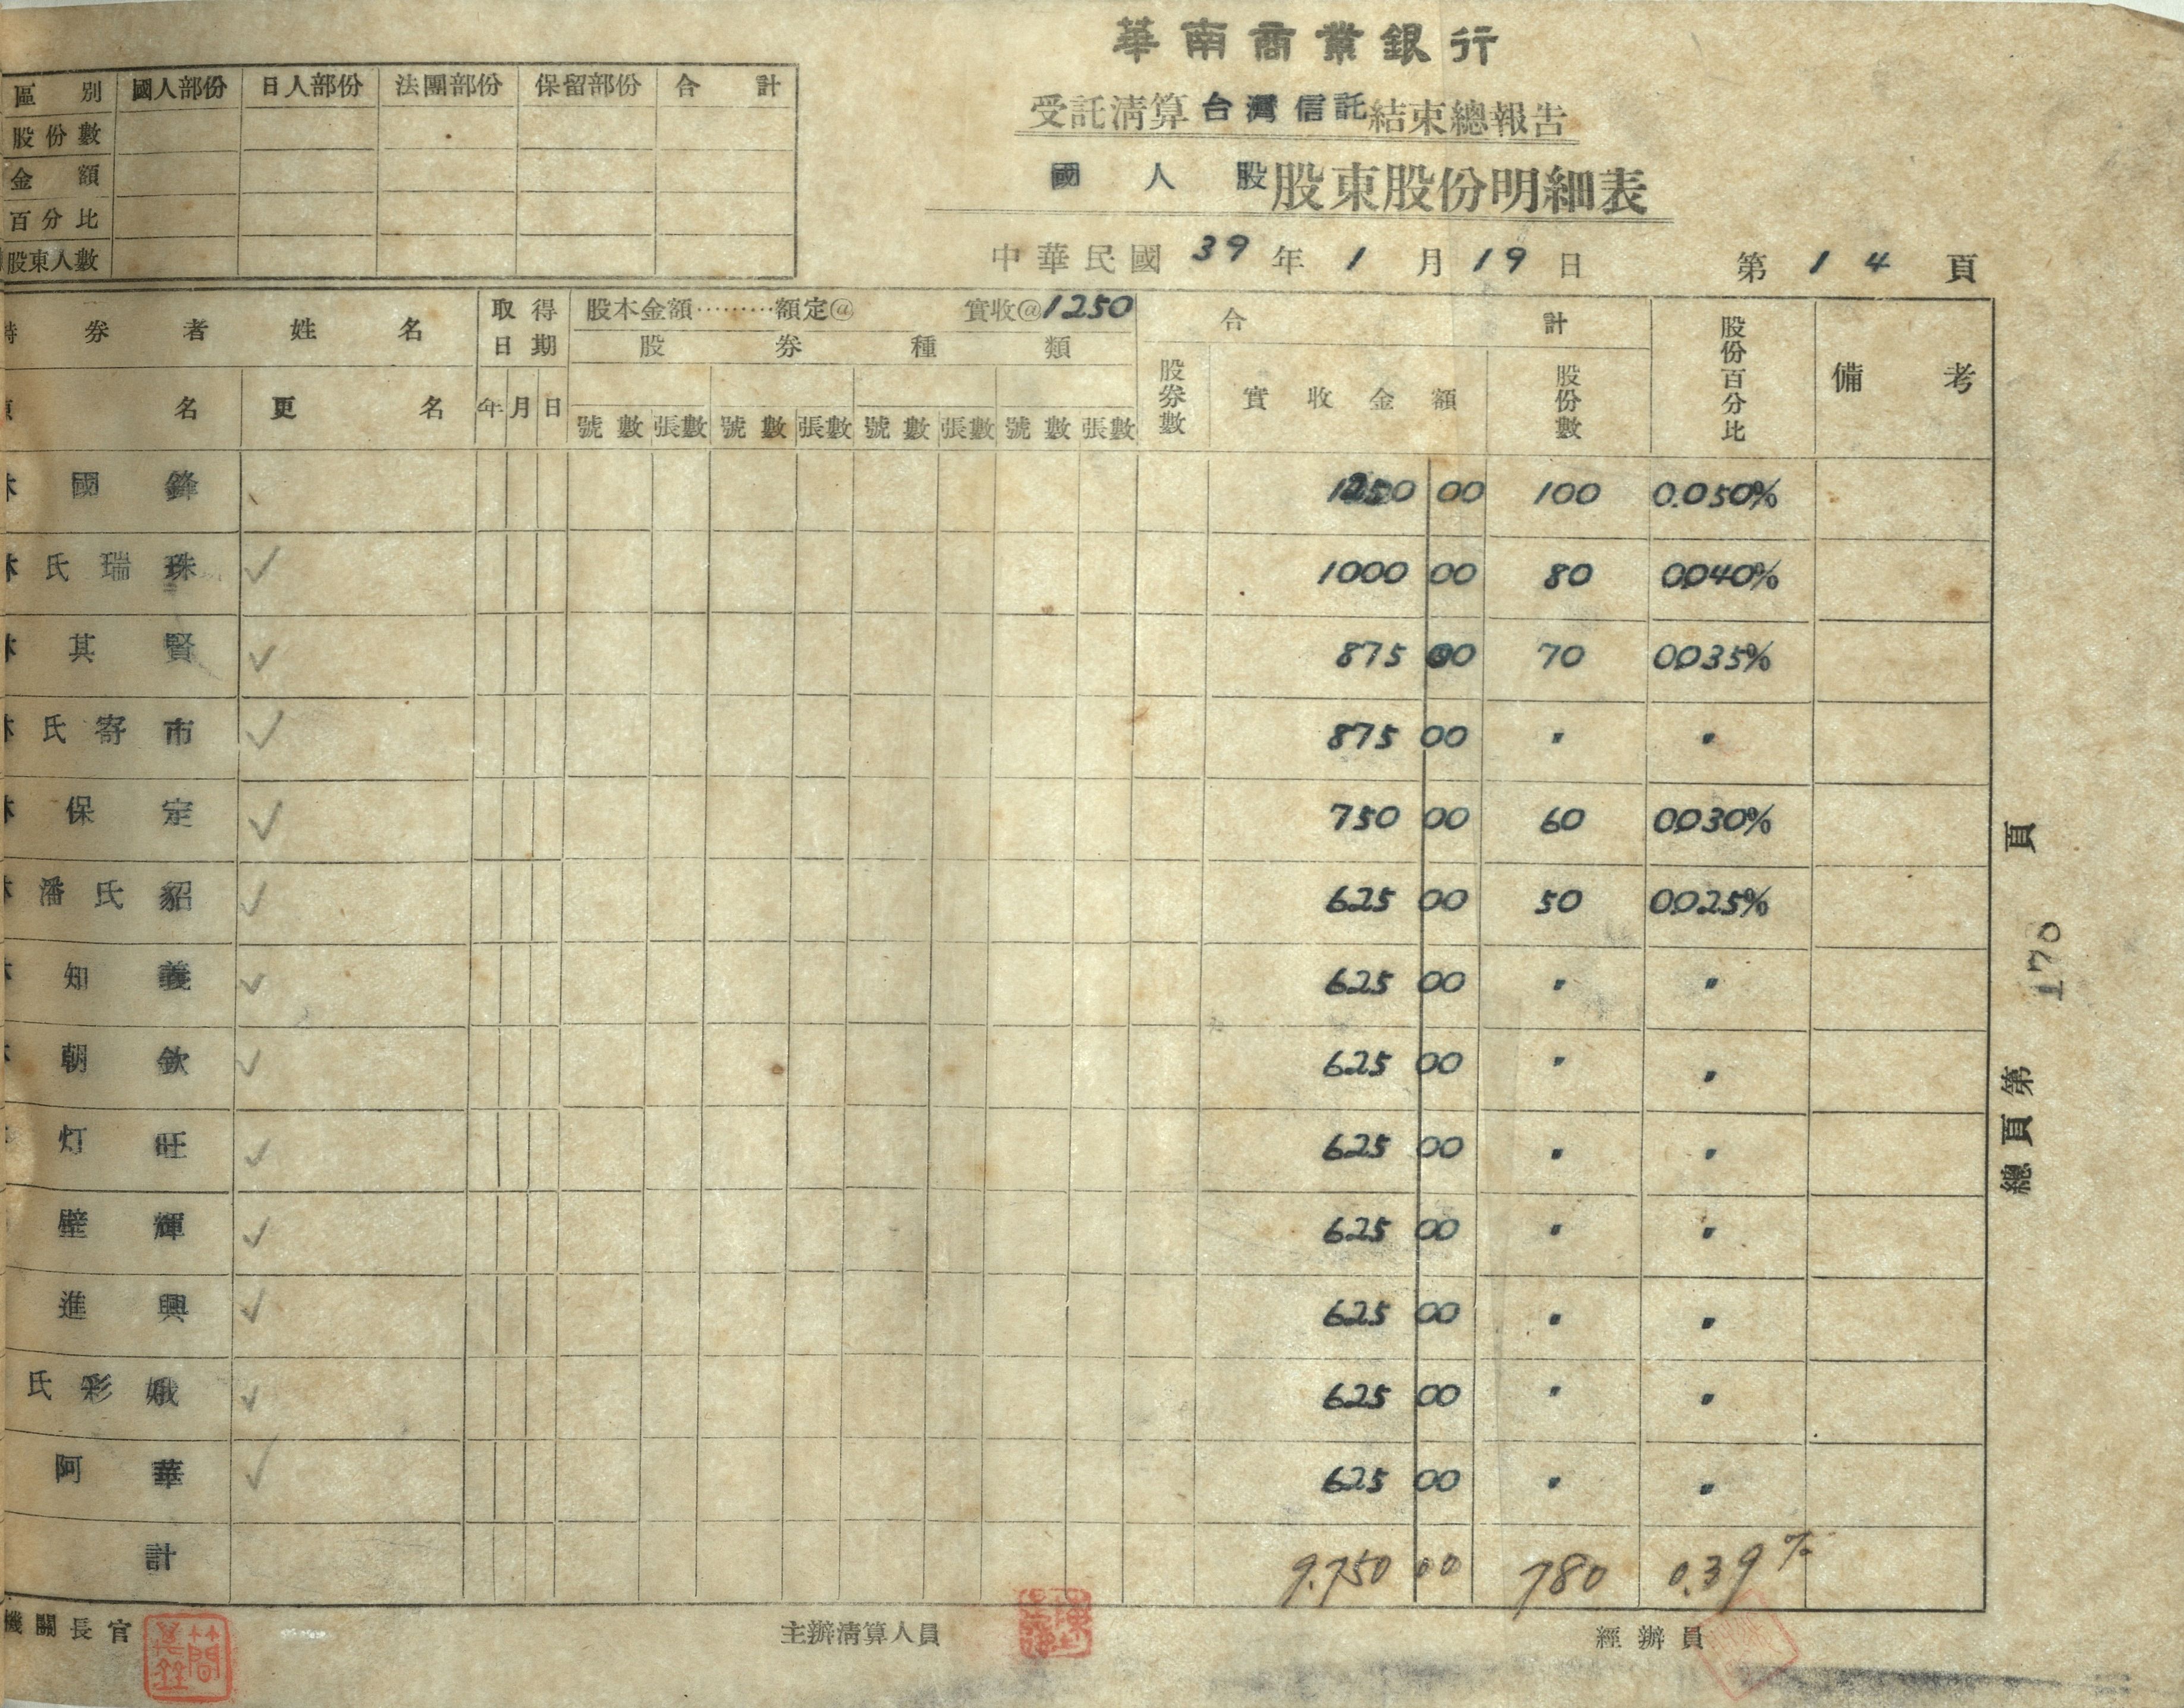 華南商業銀行
受託清算台灣信託結束總報告
國人股股東股份明細表
中華民國39年1月19日 第14頁
區別 國人部份 日人部份 法團部份 保留部份 合計
股份數
金額
百分比
股東人數
券者姓名 取得日期 股本金額………額定@ 實收@1250 合計 股份百分比 備考
股券種類
名 更名 年 月 日 號數 張數 號數 張數 號數 張數 號數 張數 股券數 實收金額 股份數
國鋒 1250 00 100 0.050%
林氏瑞珠 ✓ 1000 00 80 0040%
林其賢 ✓ 875 00 70 0035%
林氏寄市 ✓ 875 00 〃 〃
林保定 ✓ 750 00 60 0030%
林潘氏貂 ✓ 625 00 50 0025%
知義 ✓ 625 00 〃 〃
朝欽 ✓ 625 00 〃 〃
灯旺 ✓ 625 00 〃 〃
壁輝 ✓ 625 00 〃 〃
進興 ✓ 625 00 〃 〃
氏彩娥 ✓ 625 00 〃 〃
阿華 ✓ 625 00 〃 〃
計 9.750 00 780 0.39%
機關長官 主辦清算人員 經辦員
總頁第170頁